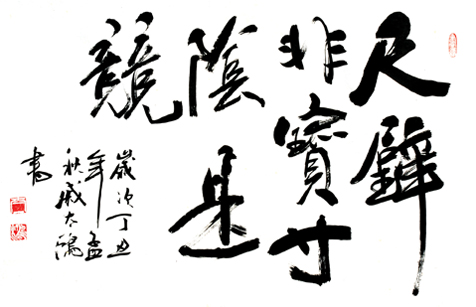 尺璧
非寶寸
陰是
競
歲次丁丑
年孟
秋戚太隅
書